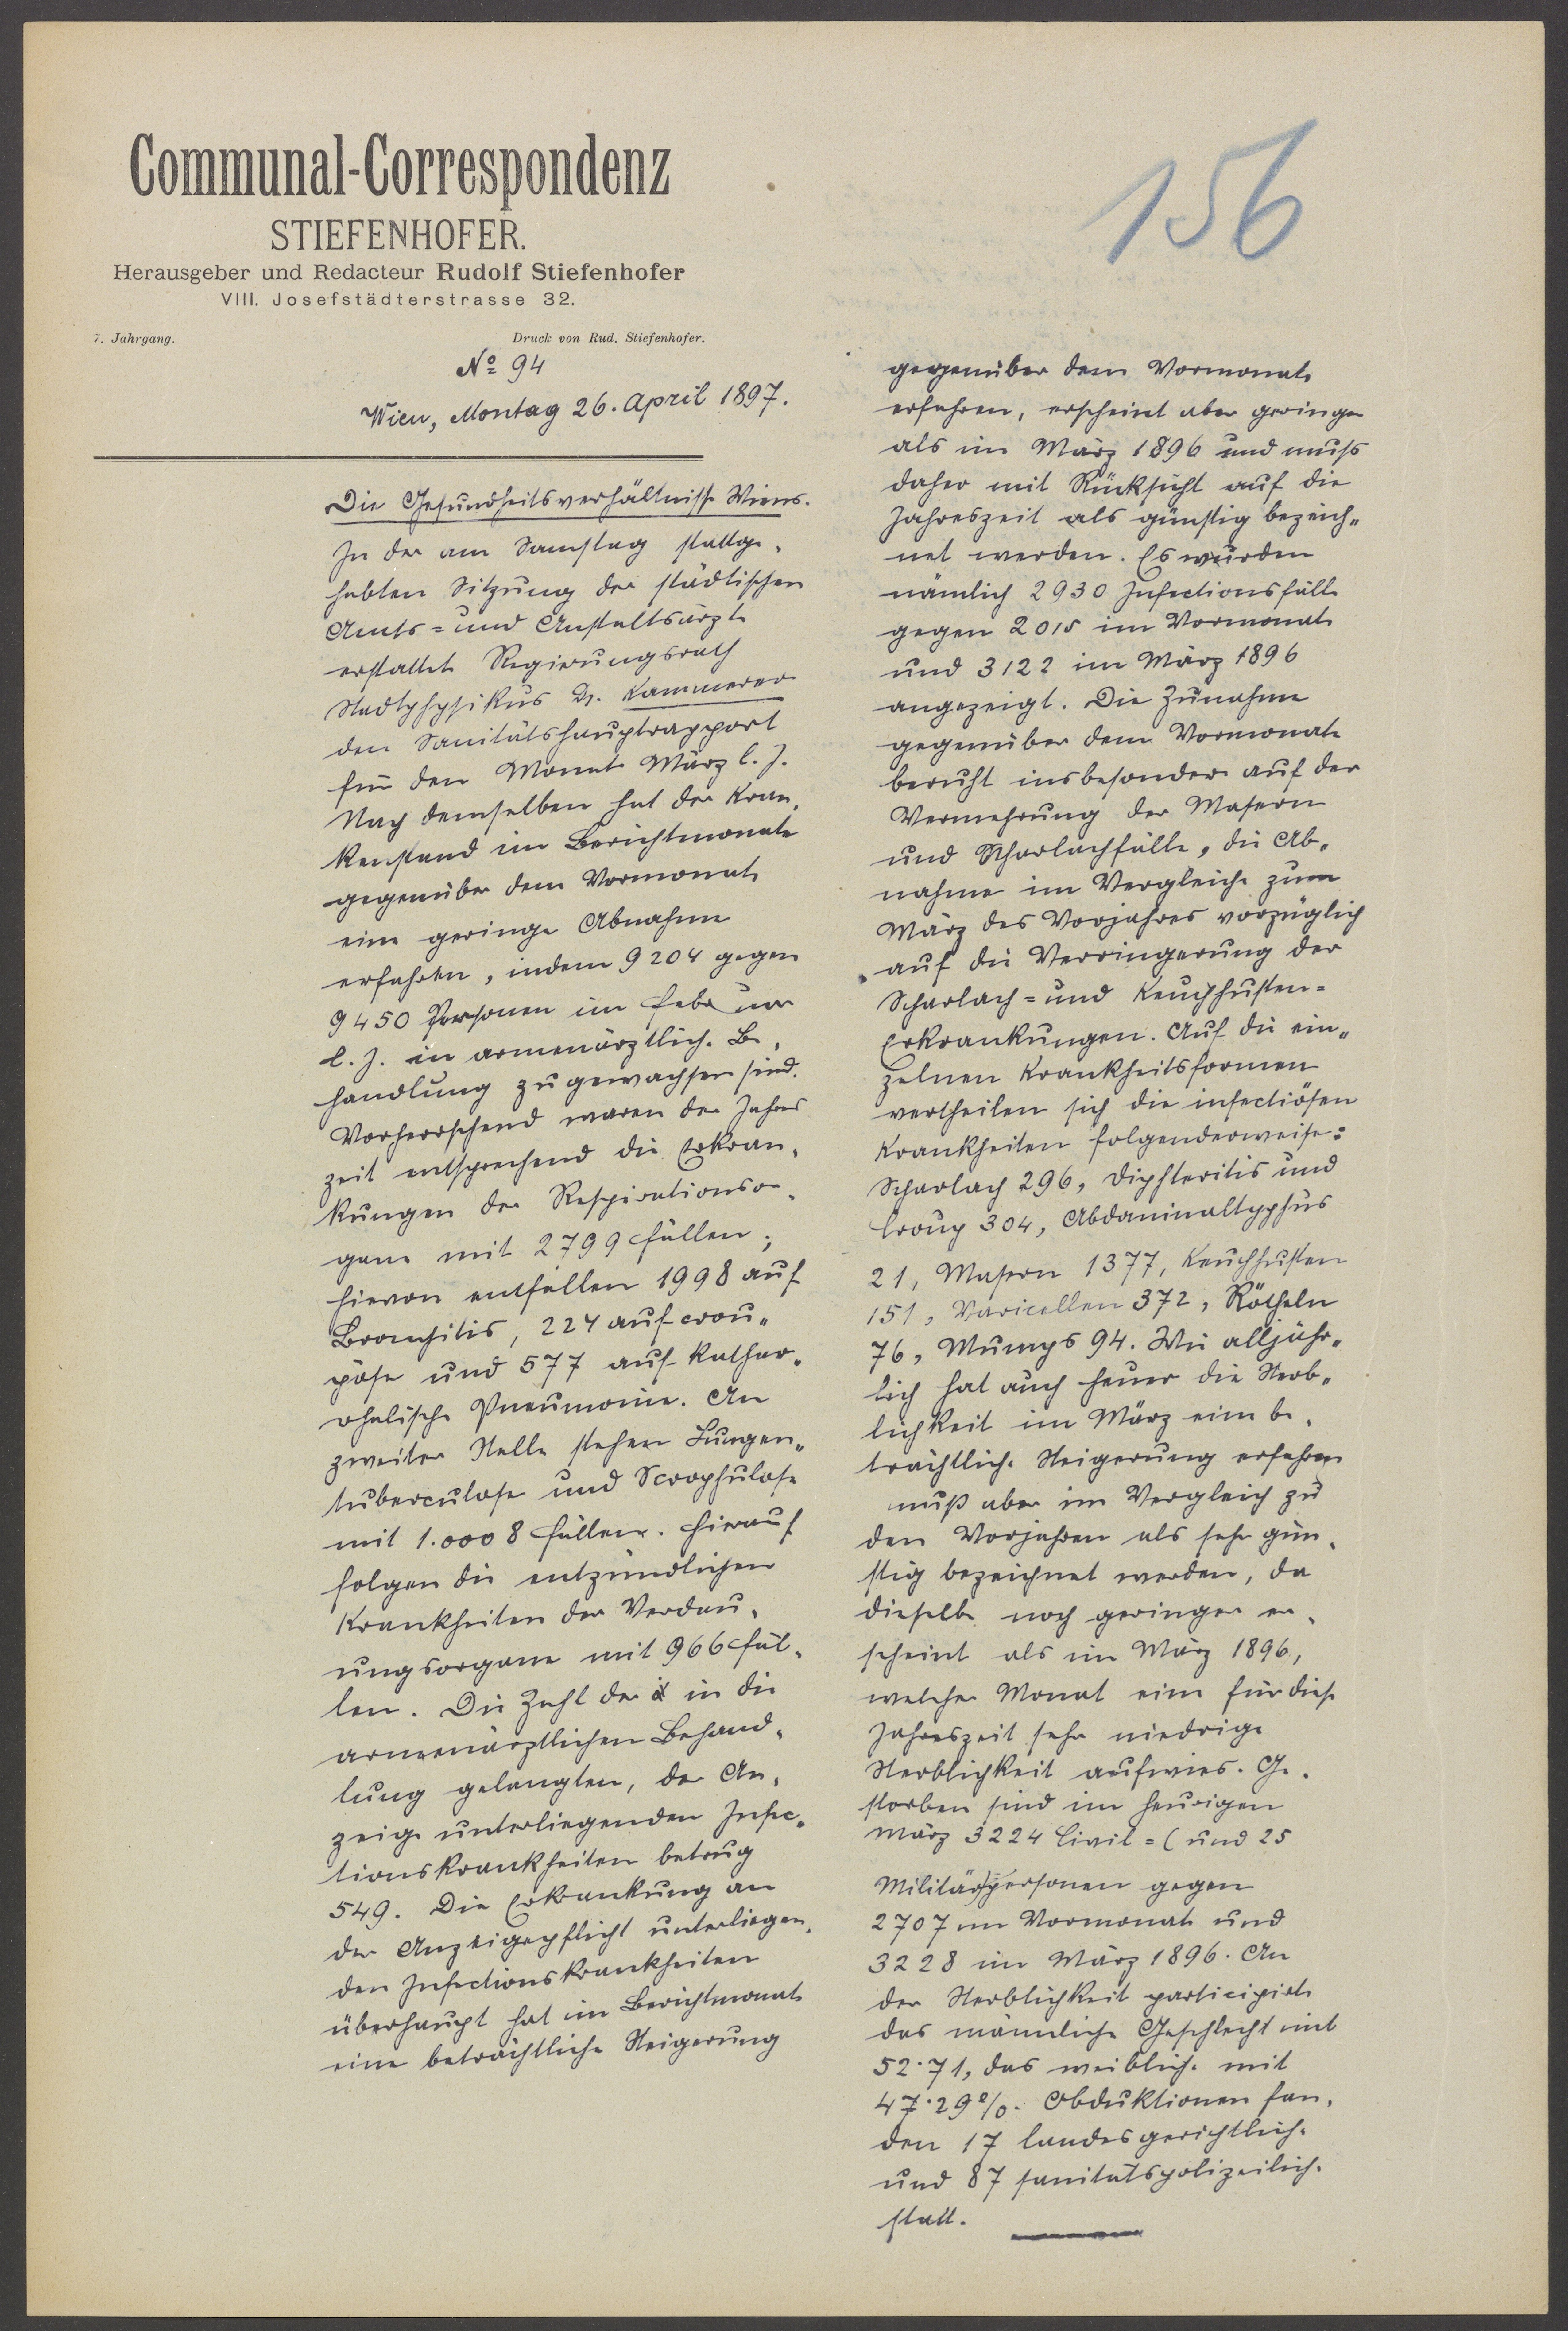 Communal-Correspondenz
STIEFENHOFER.
Herausgeber und Redacteur Rudolf Stiefenhofer
VIII. Josefstädterstrasse 32.
7. Jahrgang. Druck von Rud. Stiefenhofer.
№ 94
Wien, Montag 26. April 1897.
156
Die Gesundheitsverhältnisse Wiens.
In der am Samstag stattge-
habten Sitzung der städtischen
Amts- und Anstaltsärzte
erstattete Regierungsrath
Stadtphysikus Dr. Kammerer
den Sanitätshauptrapport
für den Monat März l. J.
Nach demselben hat der Kran-
kenstand im Berichtmonate
gegenüber dem Vormonate
eine geringe Abnahme
erfahren, indem 9204 gegen
9450 Personen im Februar
l. J. in armenärztliche Be-
handlung zugewachsen sind.
Vorherrschend waren der Jahres
zeit entsprechend die Erkran-
kungen der Respirationsor-
gane mit 2799 Fällen;
hievon entfallen 1998 auf
Bronchitis, 224 auf crou-
pöse und 577 auf kathar-
rhalische Pneumonie. An
zweiter Stelle stehen Lungen-
tuberculose und Scrophulose
mit 1.0008 Fällen. Hierauf
folgen die entzündlichen
Krankheiten der Verdau-
ungsorgane mit 966 Fäl-
len. Die Zahl der in die
armenärztlichen Behand-
lung gelangten, der An-
zeige unterliegenden Infec-
tionskrankheiten betrug
549. Die Erkrankung an
der Anzeigepflicht unterliegen-
den Infectionskrankheiten
überhaupt hat im Berichtmonate
eine beträchtliche Steigerung
gegenüber dem Vormonate
erfahren, erscheint aber geringer
als im März 1896 und muss
daher mit Rücksicht auf die
Jahreszeit als günstig bezeich-
net werden. Es wurden
nämlich 2930 Infectionsfälle
gegen 2015 im Vormonate
und 3122 im März 1896
angezeigt. Die Zunahme
gegenüber dem Vormonate
beruht insbesondere auf der
Vermehrung der Masern
und Scharlachfälle, die Ab-
nahme im Vergleiche zum
März des Vorjahres vorzüglich
auf die Verringerung der
Scharlach- und Keuchhusten-
Erkrankungen. Auf die ein-
zelnen Krankheitsformen
vertheilen sich die infectiösen
Krankheiten folgenderweise:
Scharlach 296, Diphteritis und
Croup 304, Abdaminaltyphus
21, Masern 1377, Keuchhusten
151, Varicellen 372, Rötheln
76, Mumps 94. Wie alljähr-
lich hat auch heuer die Sterb-
lichkeit im März eine be-
trächtliche Steigerung erfahren
muß aber im Vergleich zu
den Vorjahren als sehr gün-
stig bezeichnet werden, da
dieselbe noch geringer er-
scheint als im März 1896,
welcher Monat eine für diese
Jahreszeit sehr niedrige
Sterblichkeit aufwies. Ge-
storben sind im heurigen
März 3224 Civil- (und 25
Militär)personen gegen
2707 im Vormonate und
3228 im März 1896. An
der Sterblichkeit participirte
das männliche Geschlecht mit
52·71, das weibliche mit
47·29%. Obduktionen fan-
den 17 landesgerichtliche
und 87 sanitätspolizeiliche
statt.